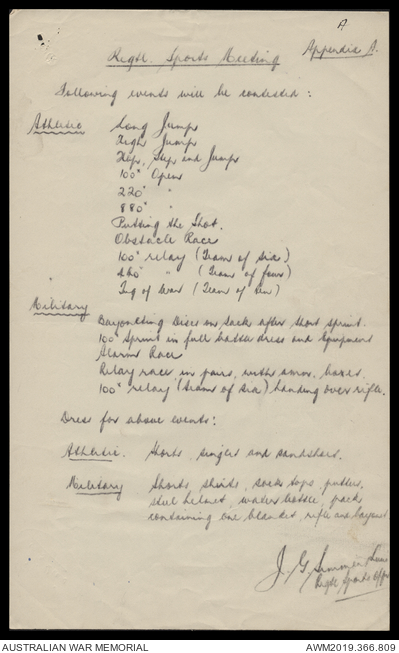 A.
Appendix A.
Regtl. Sports Meeting
Following events will be contested:
Athletic Long Jump
High Jump
Hop, Step and Jump
100ˣ Open
220ˣ "
880ˣ "
Putting the Shot.
Obstacle Race
100ˣ relay (Team of six)
440ˣ " (Team of four)
Tug of War (Team of ten)
Military
Bayonetting Discs on Sacks after short sprint.
100ˣ Sprint in full battle dress and equipment
Alarm Race
Relay race in pairs, with ammn. boxes.
100ˣ relay (team of six) handing over rifle.
Dress for above events:
Athletic. Shorts, singlet and sandshoes.
Military Shorts, shirts, sock tops, puttees,
steel helmet, water bottle, pack
containing one blanket, rifle and bayonet
J. G.
Regtl Sports Offr
AUSTRALIAN WAR MEMORIAL
AWM2019.366.809